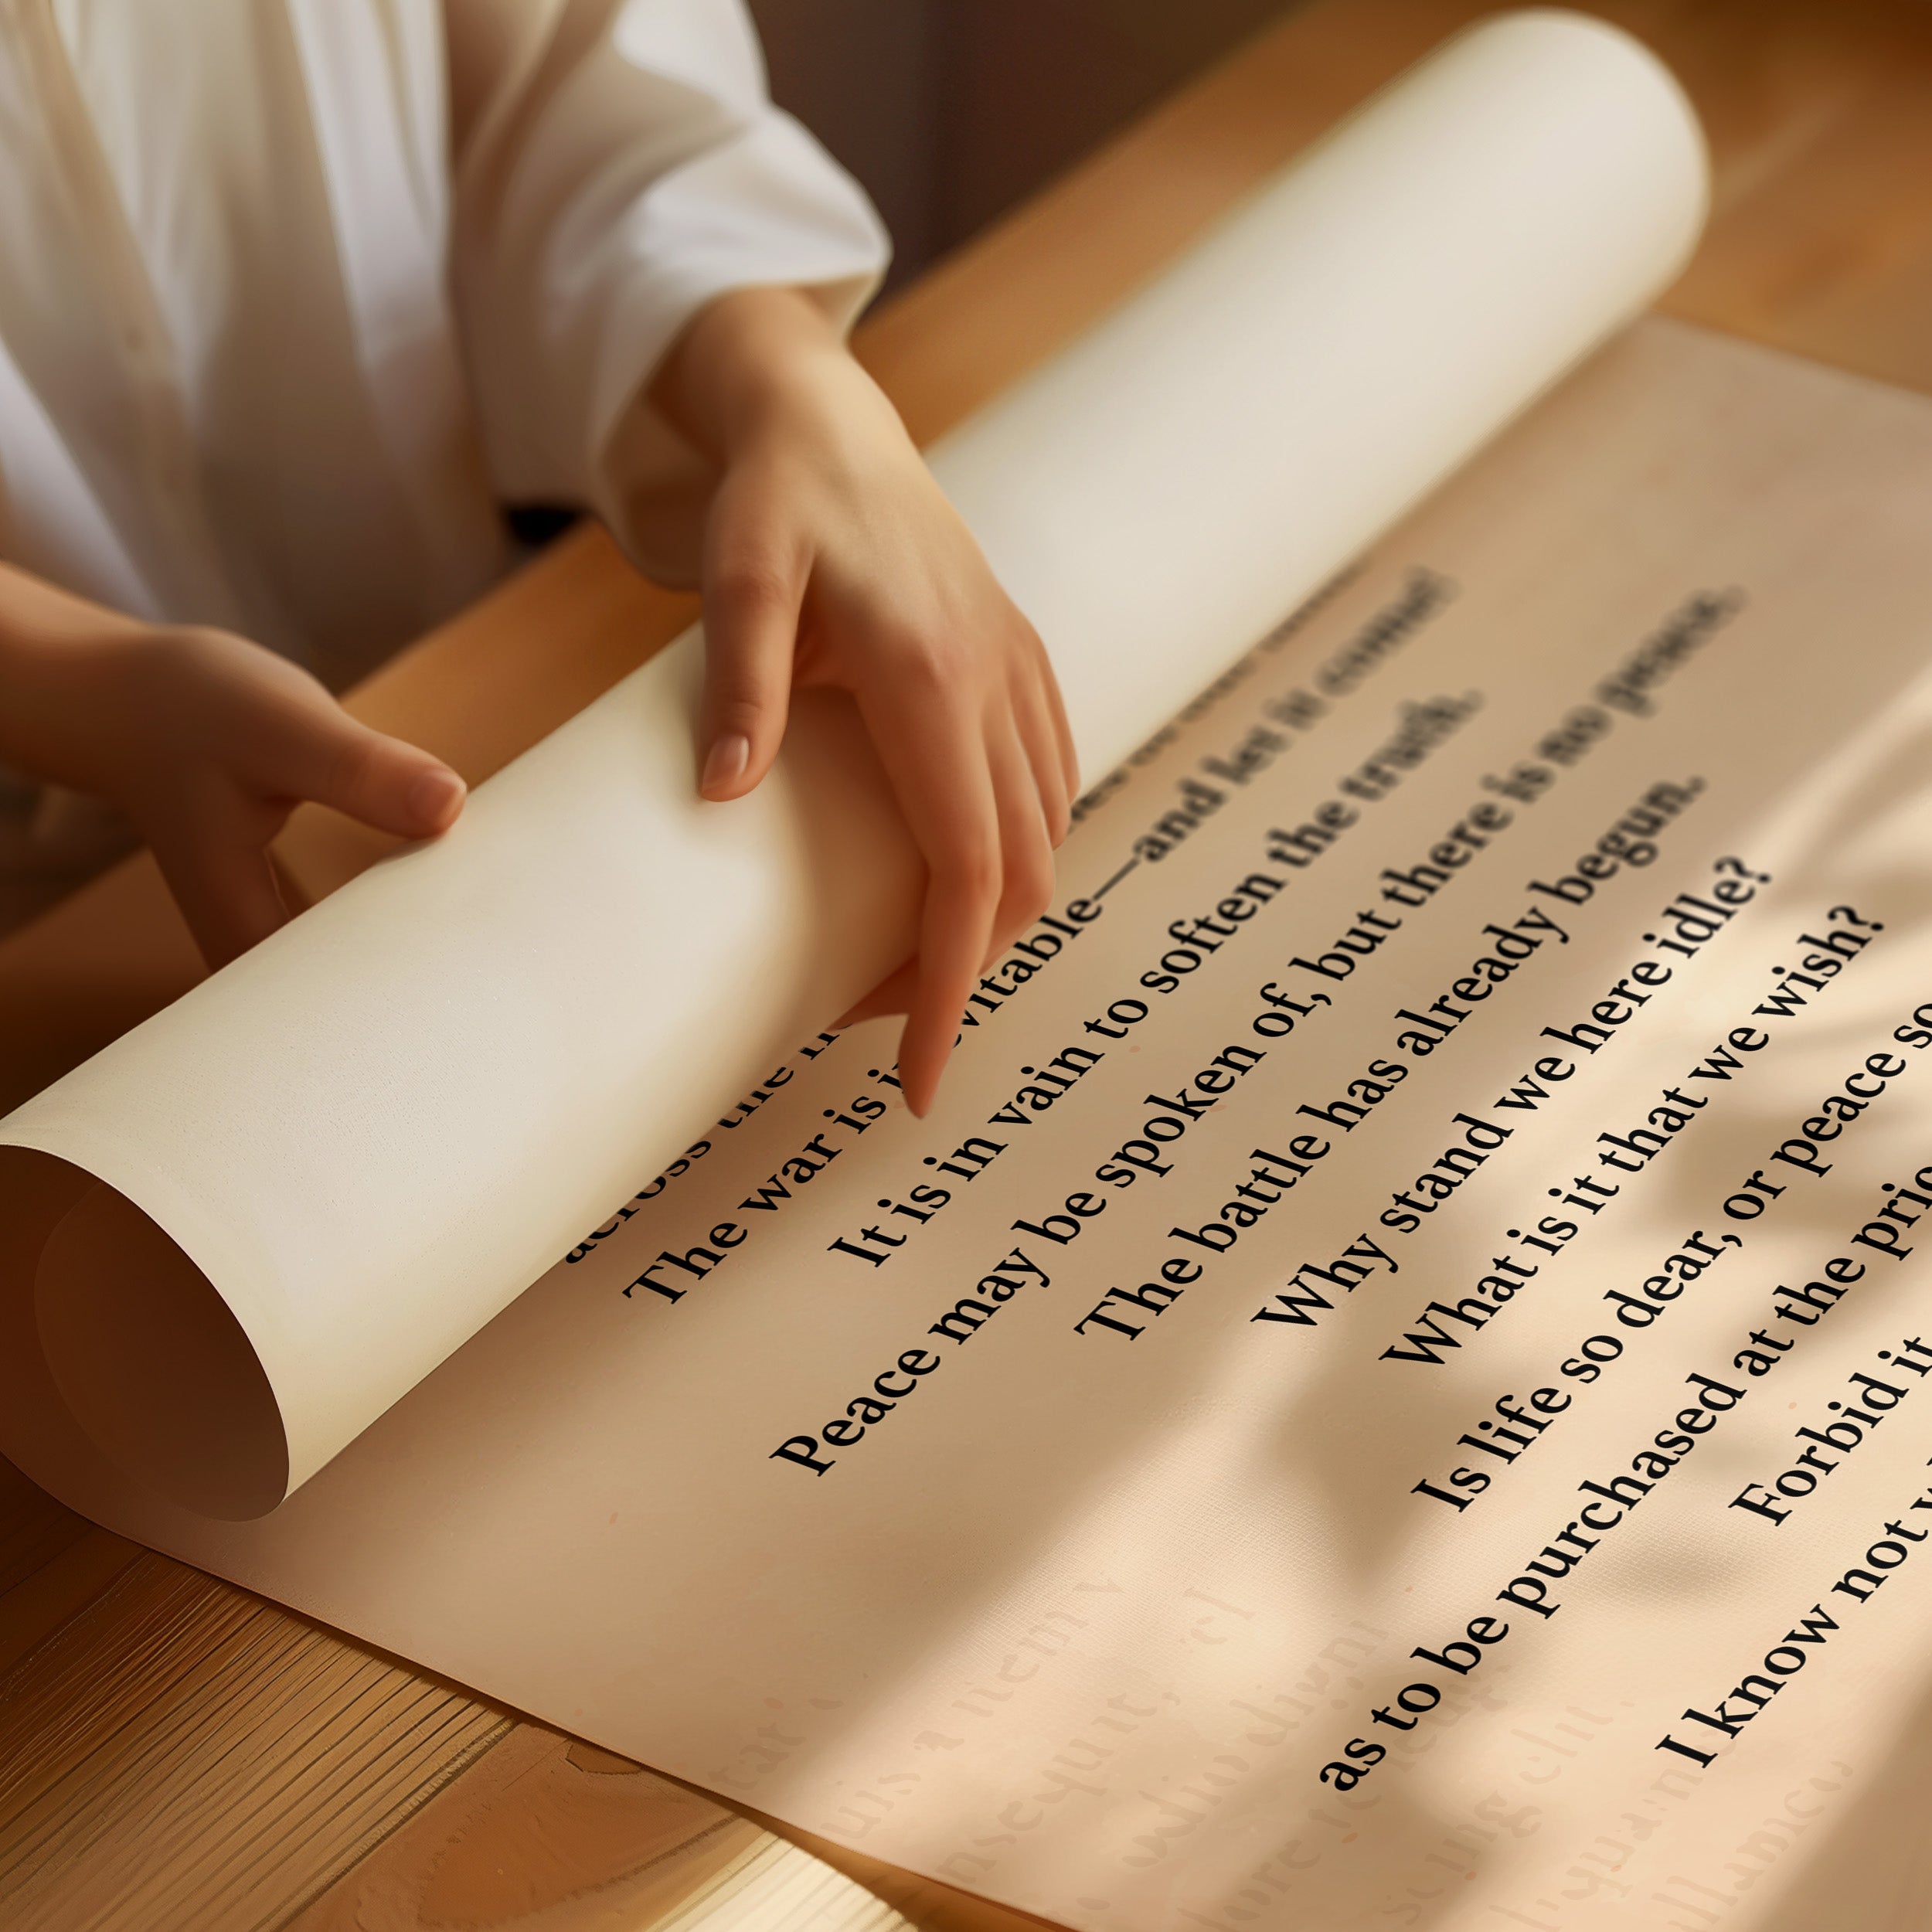 across the
The war is inevitable—and let it come!
It is in vain to soften the truth.
Peace may be spoken of, but there is no peace.
The battle has already begun.
Why stand we here idle?
What is it that we wish?
Is life so dear, or peace so
as to be purchased at the
Forbid it
I know not